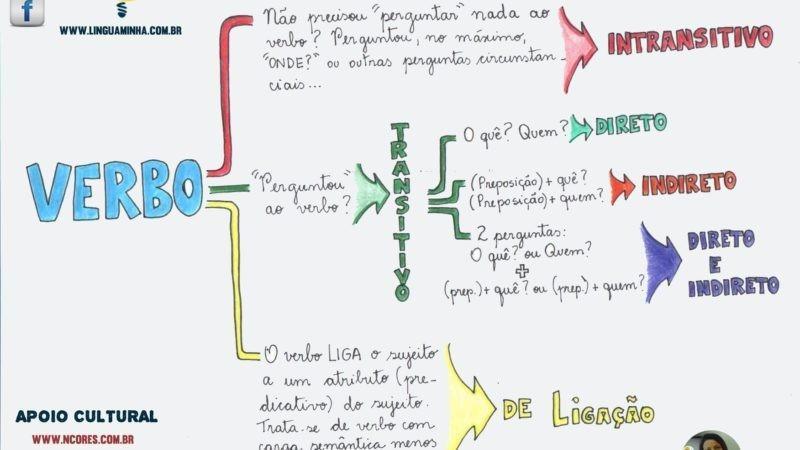 f
WWW.LINGUAMINHA.COM.BR
Não precisou "perguntar" nada ao
verbo? Perguntou, no máximo,
"ONDE?" ou outras perguntas circunstan-
ciais...
INTRANSITIVO
VERBO
"Perguntou"
ao verbo?
TRANSITIVO
O quê? Quem?
DIRETO
(Preposição) + quê?
(Preposição) + quem?
INDIRETO
2 perguntas:
O quê? ou Quem?
+
(prep.) + quê? ou (prep.) + quem?
DIRETO
E
INDIRETO
O verbo LIGA o sujeito
a um atributo (pre-
dicativo) do sujeito.
Trata-se de verbo com
carga semântica menos
DE LIGAÇÃO
APOIO CULTURAL
WWW.NCORES.COM.BR